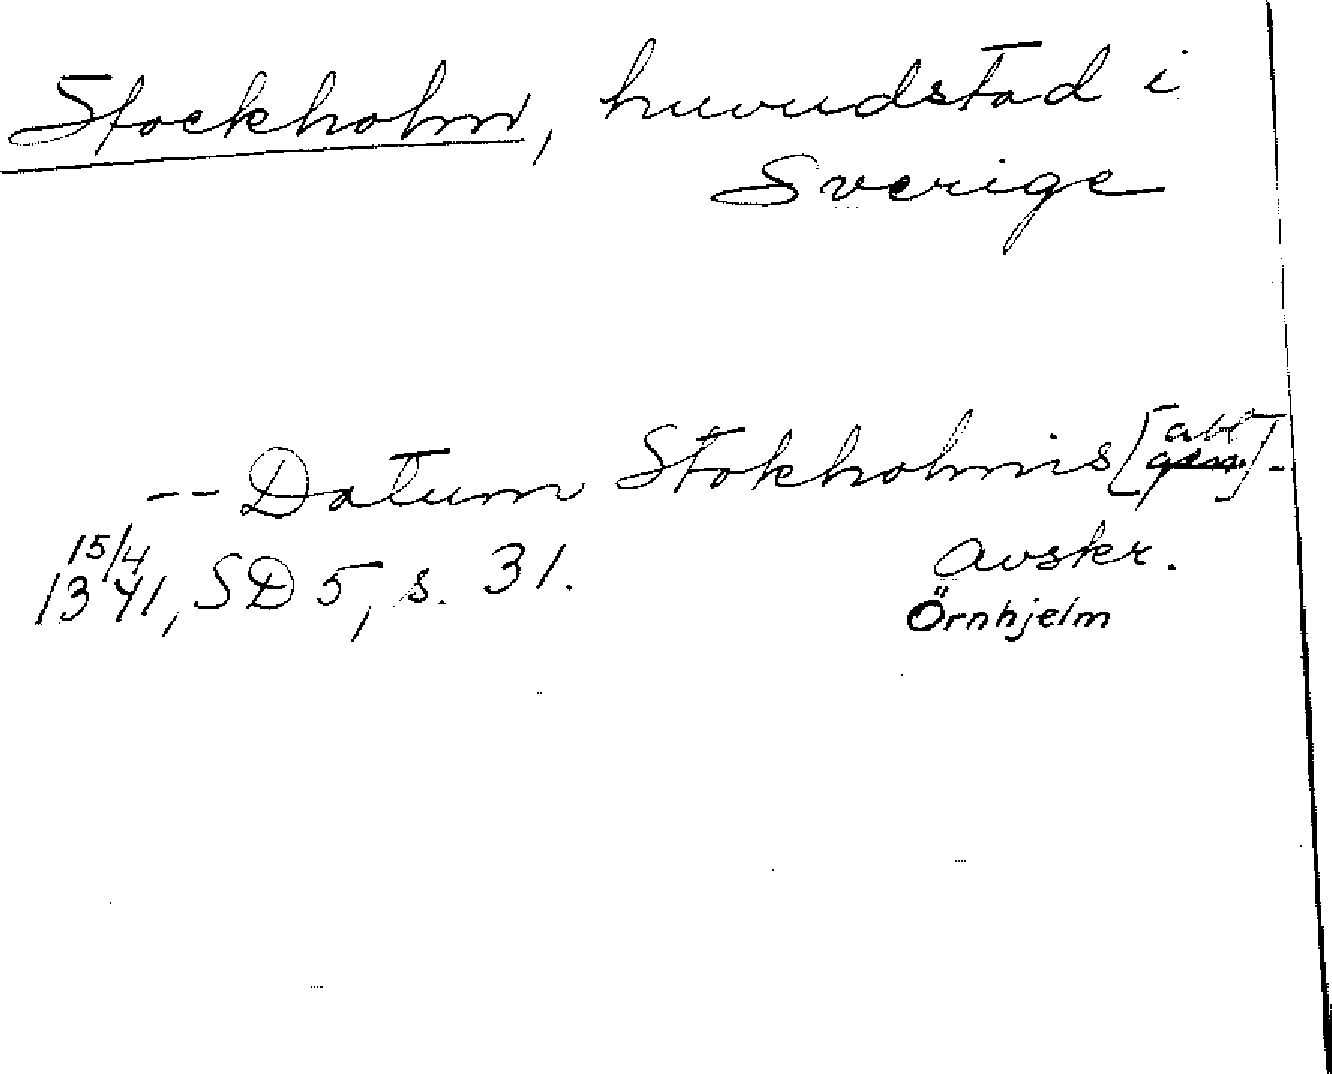 Stockholm, huvudstad i
Sverige
-- Datum Stokholmis [abl gen.] -
15/4 1341, SD 5, s. 31.
avskr.
Örnhjelm